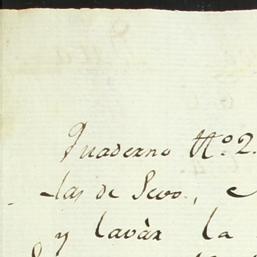 Quaderno Nº. 2.
las de Sevo,
y lavàr la